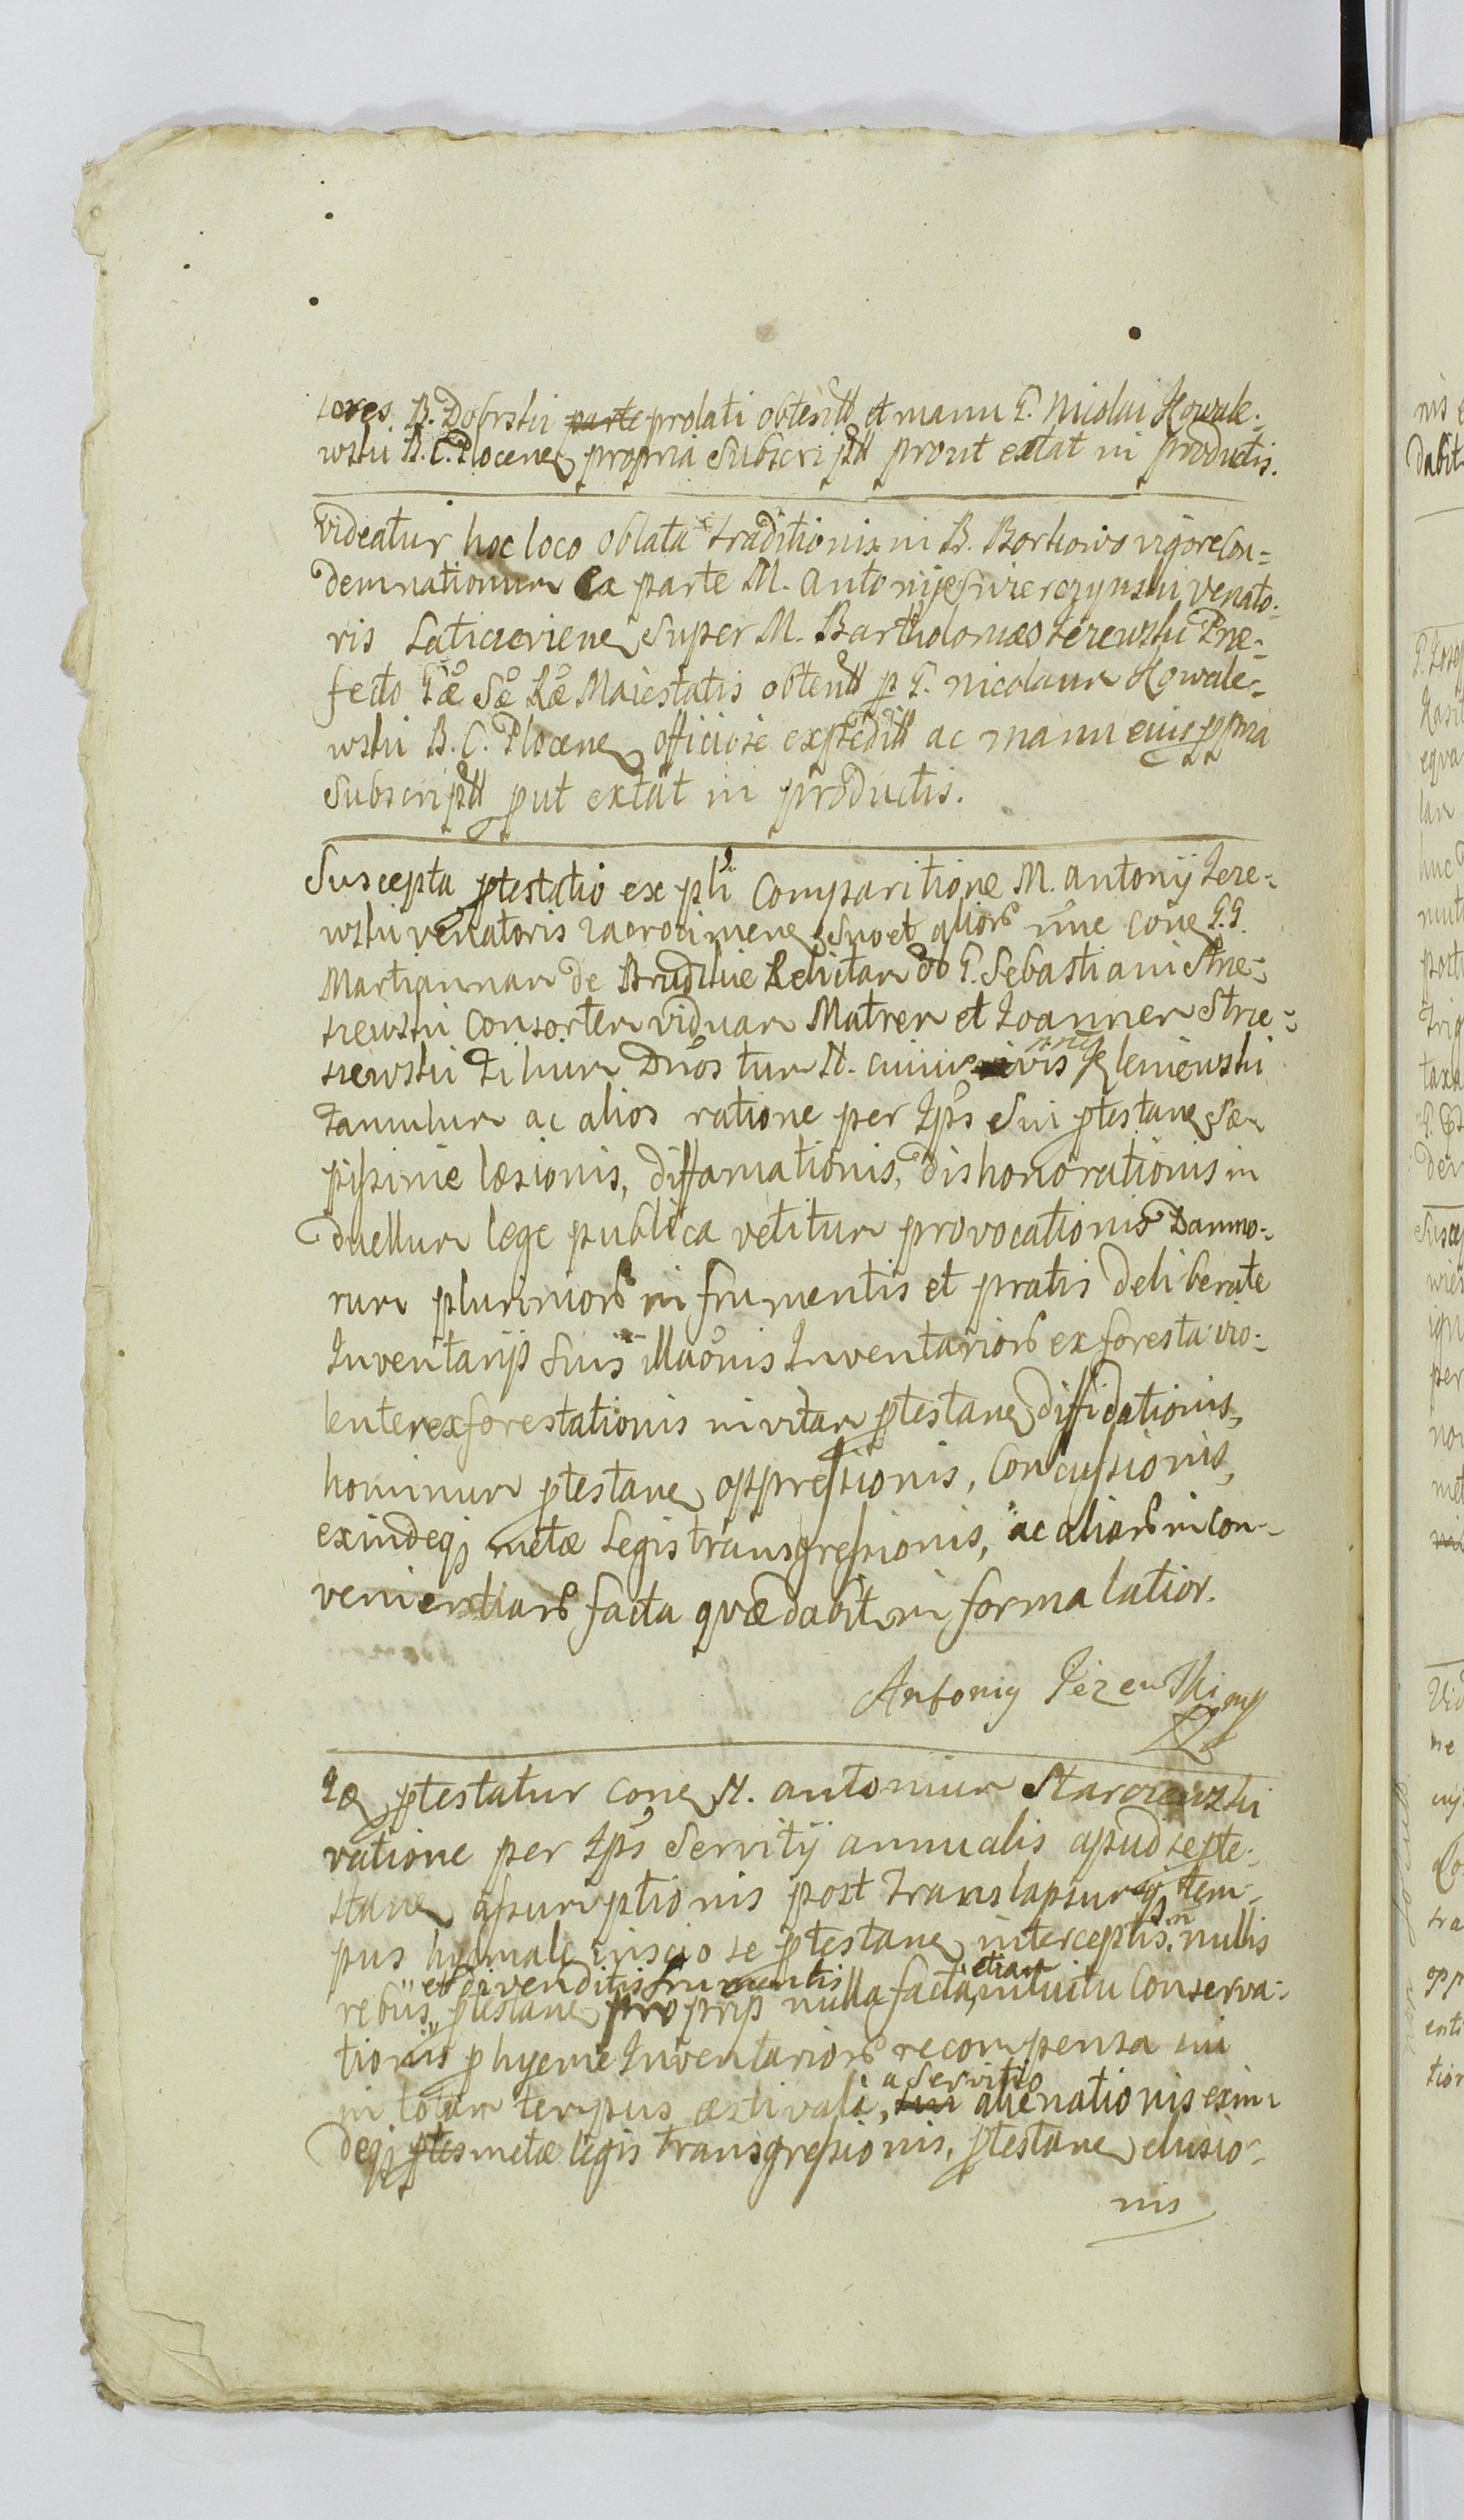 tores B. Dobrski parte prolati obtentt et manu G. Nicolai Kowale-
wski B. C. Plocen propria Subscriptt prout extat in productis.
Videatur hoc loco oblata traditionis in B. Borkowo vigore Con=
demnationum ex parte M. Antonij Swierczynski Venato-
ris Super M. Bartholomæo Jezewski Præ-
fecto Gæ Sæ Ræ Maiestatis obtentt p G. Nicolaum Kowale-
wski B. C. Plocen officiose expeditt ac manu eius ppria
Subscriptt put extat in productis.
Suscepta ptestatio ex pli Comparitione M. Antonij Jeze-
wski venatoris Zacrocimen Suo et alior nne cone G. G.
Mariannam de Relictam G. Sebastiani Strze-
szewski Consortem viduam Matrem et Joannem Strze=
szewski Filium Dnos tum N. cuius vis Zeleniewski
famulum ac alios ratione per Ips Sui ptestane Sæ
pissime læsionis, diffamationis, dishonorationis in
duellum lege publica vetitum provocationis Damno-
rum plurimor in frumentis et pratis deliberate
Inventarijs Suis illaonis Inventarior ex foresta vio-
lenter exforestationis in vitam ptestane diffidationis,
hominum ptestane oppressionis, Concussionis,
exindeq metæ Legis transgressionis, ac aliar incon-
venientiar facta quæ dabit in forma latior.
Antoniy Jezewski mp
Id ptestatur cone N. Antonium Starorzewski
ratione per Ips Servitij annualis apud se pte-
stane assumptionis post translapsum tem-
pus hyemale inscio se ptestane interceptis nullis
et divenditis frumentis etiam
rebus ptestane proprijs nulla facta intuitu Conserva-
tionis p hyeme Inventarior recompensa sui
a Servitio
in totum tempus æstivale, sui alienationis exin-
deq ptes metæ legis transgressionis, ptestane elusio-
nis